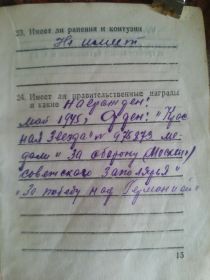 23. Имеет ли ранения и контузии
Не имеет
24. Имеет ли правительственные награды
и какие Награжден:
май 1945, Орден: "Крас-
ная Звезда" № 976873 ме-
дали "За оборону Москвы,
советского Заполярья"
"За победу над Германией"
15